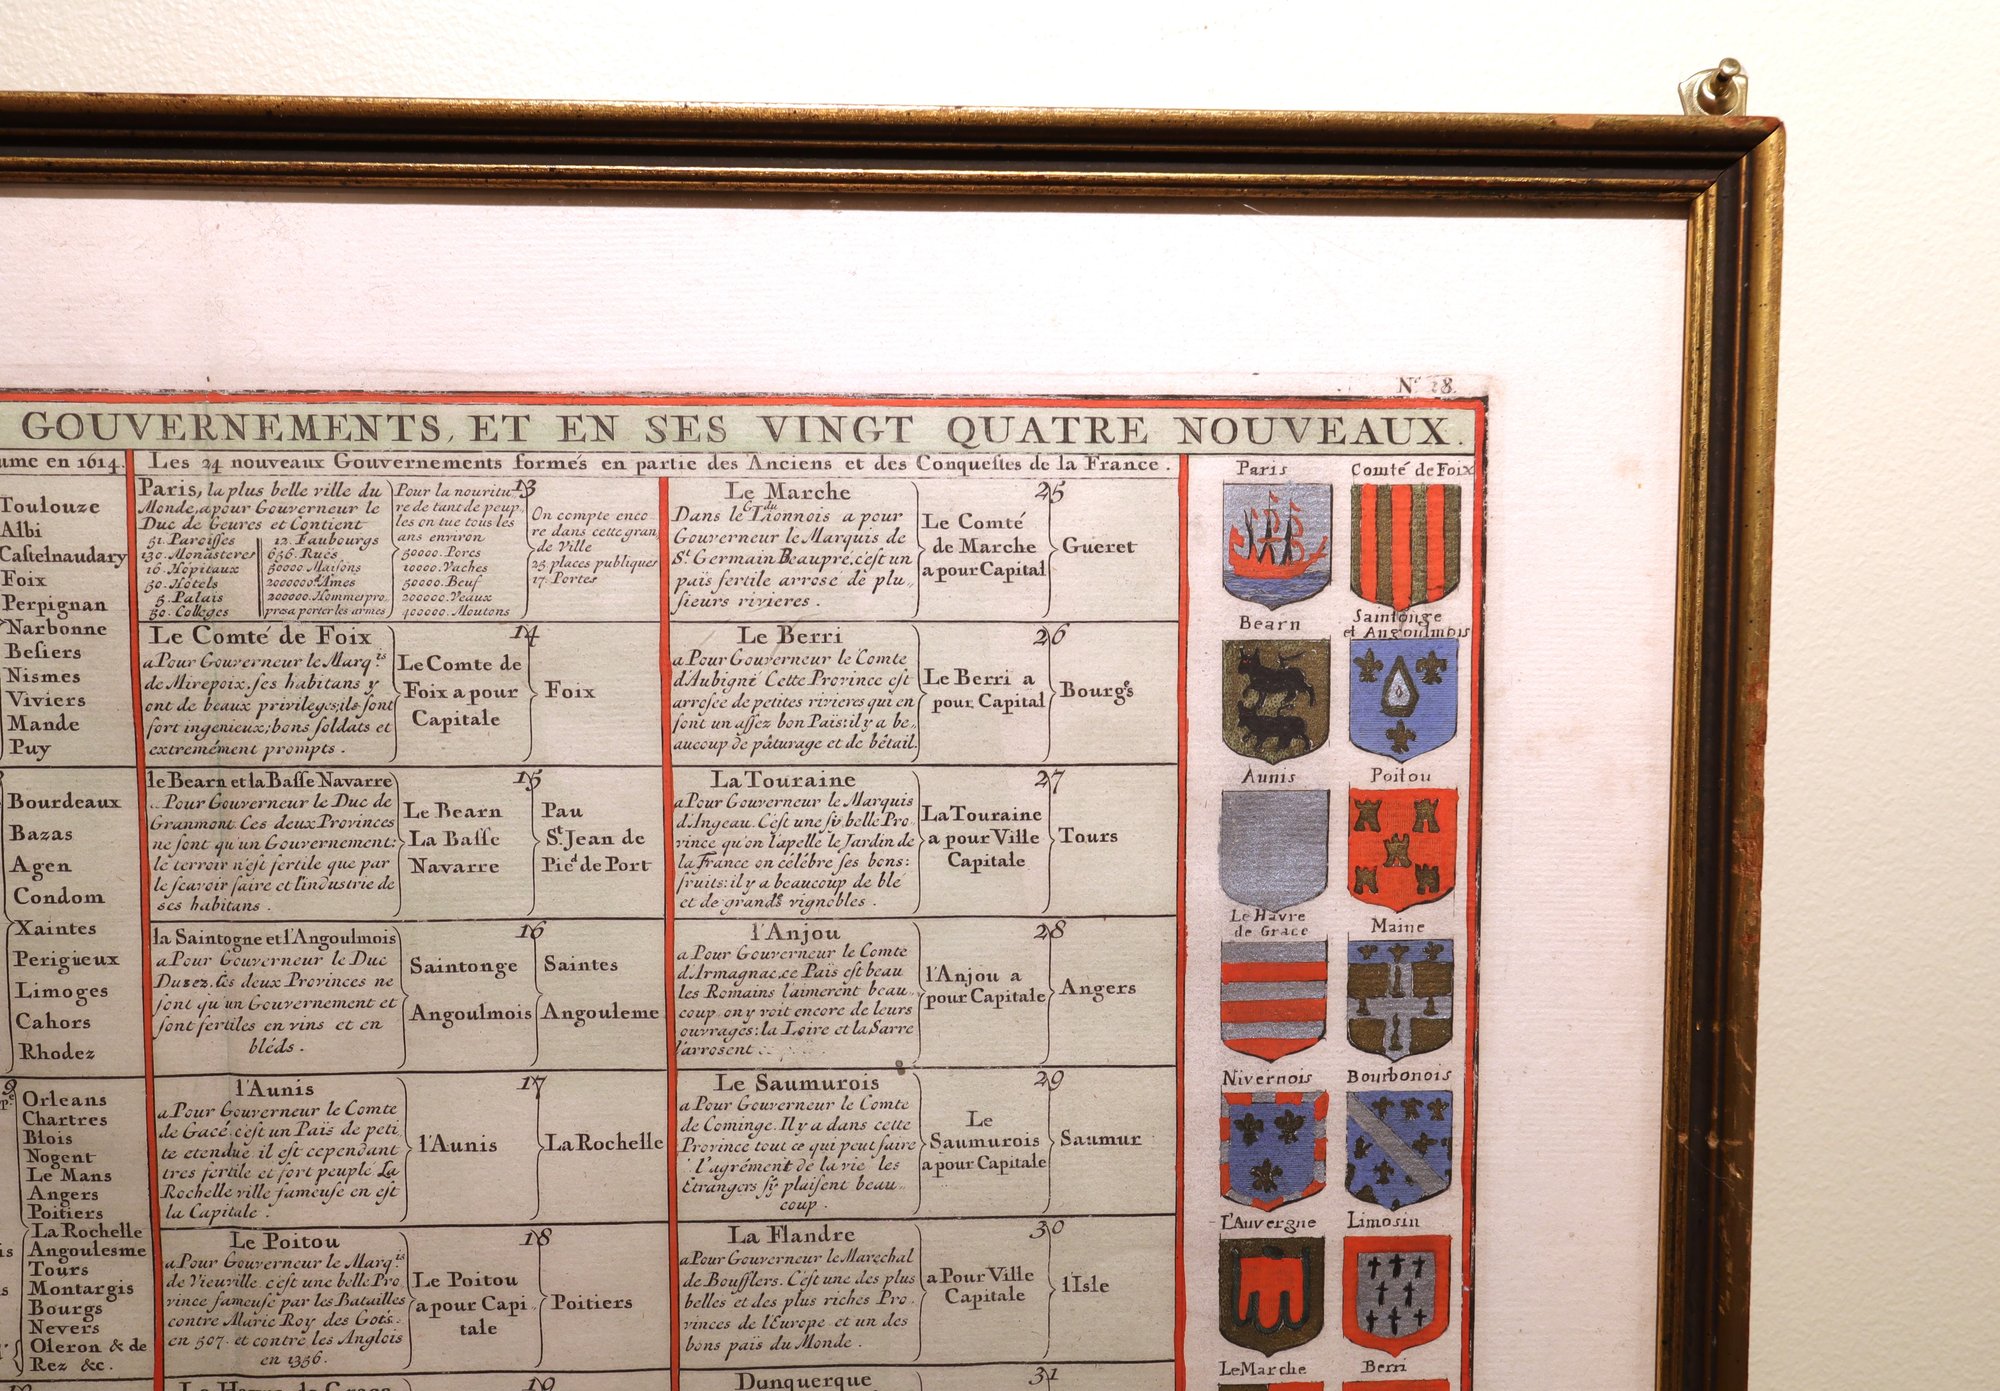 GOUVERNEMENTS, ET EN SES VINGT QUATRE NOUVEAUX.
ume en 1614.
Toulouze
Albi
Castelnaudary
Foix
Perpignan
Narbonne
Besiers
Nismes
Viviers
Mande
Puy
Bourdeaux
Bazas
Agen
Condom
Xaintes
Perigueux
Limoges
Cahors
Rhodez
Orleans
Chartres
Blois
Nogent
Le Mans
Angers
Poitiers
La Rochelle
Angoulesme
Tours
Montargis
Bourgs
Nevers
Oleron & de
Rez &c.
Les 24 nouveaux Gouvernements formés en partie des Anciens et des Conquestes de la France.
13
Paris, la plus belle ville du
Monde, a pour Gouverneur le
Duc de Gevres et Contient
51. Paroisses
130. Monasteres
16. Hôpitaux
50. Hôtels
5. Palais
50. Colleges
12. Faubourgs
656. Rues
50000. Maisons
2000000 d'Ames
200000. Homme pro,
pres a porter les armes
Pour la nouritu,
re de tant de peup,
les on tue tous les
ans environ
50000. Porcs
10000. Vaches
50000. Beuf
200000. Veaux
400000. Moutons
On compte enco
re dans cette gran,
de Ville
25 places publiques
17. Portes
14
Le Comté de Foix
a Pour Gouverneur le Marq.is
de Mirepoix. ses habitans y
ont de beaux privileges; ils sont
fort ingenieux; bons soldats et
extremément prompts.
Le Comte de
Foix a pour
Capitale
Foix
15
le Bearn et la Basse Navarre
Pour Gouverneur le Duc de
Granmont. Ces deux Provinces
ne sont qu'un Gouvernement:
le terroir n'est fertile que par
le scavoir faire et l'industrie de
ses habitans.
Le Bearn
La Basse
Navarre
Pau
St. Jean de
Pied de Port
16
la Saintogne et l'Angoulmois
a Pour Gouverneur le Duc
Duzez. Ces deux Provinces ne
sont qu'un Gouvernement et
sont fertiles en vins et en
bléds.
Saintonge
Angoulmois
Saintes
Angouleme
17
l'Aunis
a Pour Gouverneur le Comte
de Gacé. c'est un Païs de peti
te etendue il est cependant
tres fertile et fort peuple. La
Rochelle ville fameuse en est
la Capitale.
l'Aunis
La Rochelle
18
Le Poitou
a Pour Gouverneur le Marq.is
de Vieuville. c'est une belle Pro,
vince fameuse par les Batailles
contre Alaric Roy des Gots.
en 507. et contre les Anglois
en 1356.
Le Poitou
a pour Capi,,
tale
Poitiers
19
Le Havre de Grace
25
Le Marche
Dans le G.du Lionnois a pour
Gouverneur le Marquis de
St. Germain Beaupré. c'est un
païs fertile arrosé de plu,,
sieurs rivieres.
Le Comté
de Marche
a pour Capital
Gueret
26
Le Berri
a Pour Gouverneur le Comte
d'Aubigné Cette Province est
arrosée de petites rivieres qui en
font un assez bon Païs: il y a be,
aucoup de pâturage et de bétail.
Le Berri a
pour Capital
Bourges
27
La Touraine
a Pour Gouverneur le Marquis
d'Angeau. C'est une si belle Pro,
vince qu'on l'apelle le Jardin de
la France on célébre ses bons:
fruits: il y a beaucoup de blé
et de grands vignobles.
La Touraine
a pour Ville
Capitale
Tours
28
l'Anjou
a Pour Gouverneur le Comte
d'Armagnac. ce Païs est beau
les Romains l'aimerent beau,,
coup. on y voit encore de leurs
ouvrages: la Loire et la Sarre
l'arrosent
l'Anjou a
pour Capitale
Angers
29
Le Saumurois
a Pour Gouverneur le Comte
de Cominge. Il y a dans cette
Province tout ce qui peut faire
l'agrément de la vie les
Etrangers s'y plaisent beau,,
coup.
Le
Saumurois
a pour Capitale
Saumur
30
La Flandre
a Pour Gouverneur le Marechal
de Boufflers. C'est une des plus
belles et des plus riches Pro,
vinces de l'Europe et un des
bons païs du Monde.
a Pour Ville
Capitale
l'Isle
31
Dunquerque
Paris
Comté de Foix
Bearn
Saintonge
et Angoulmois
Aunis
Poitou
Le Havre
de Grace
Maine
Nivernois
Bourbonois
L'Auvergne
Limosin
Le Marche
Berri